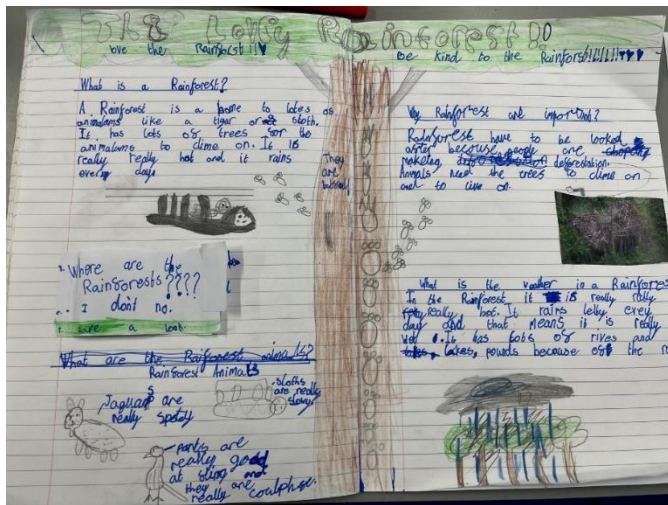 The Lofty Rainforest!!
love the Rainforest!!!
be kind to the Rainforst!!!!!!
What is a Rainforest?
A Rainforest is a home to lotes os
animalams like a tiger or sloth.
It has lots of trees for the
animalams to clime on. It is
really really hot and it rains
every day.
They
are
Where are the
Rainforests????
I don't no.
a look
What are the Rainforest animals?
Rainforest Animals
Jaguars are
really spotty
sloths
are really
slowy
parits are
really good
at
they are
really
Rainforest are importnt?
Rainforest have to be looked
after because people are
makeing deforestation.
Animals need the trees to clime on
and to live on.
What is the in a Rainfores
In the Rainforest it is really
really hot. It rains
day and that means it is really
wet. It has lots of rives and
lakes, pounds because of the r